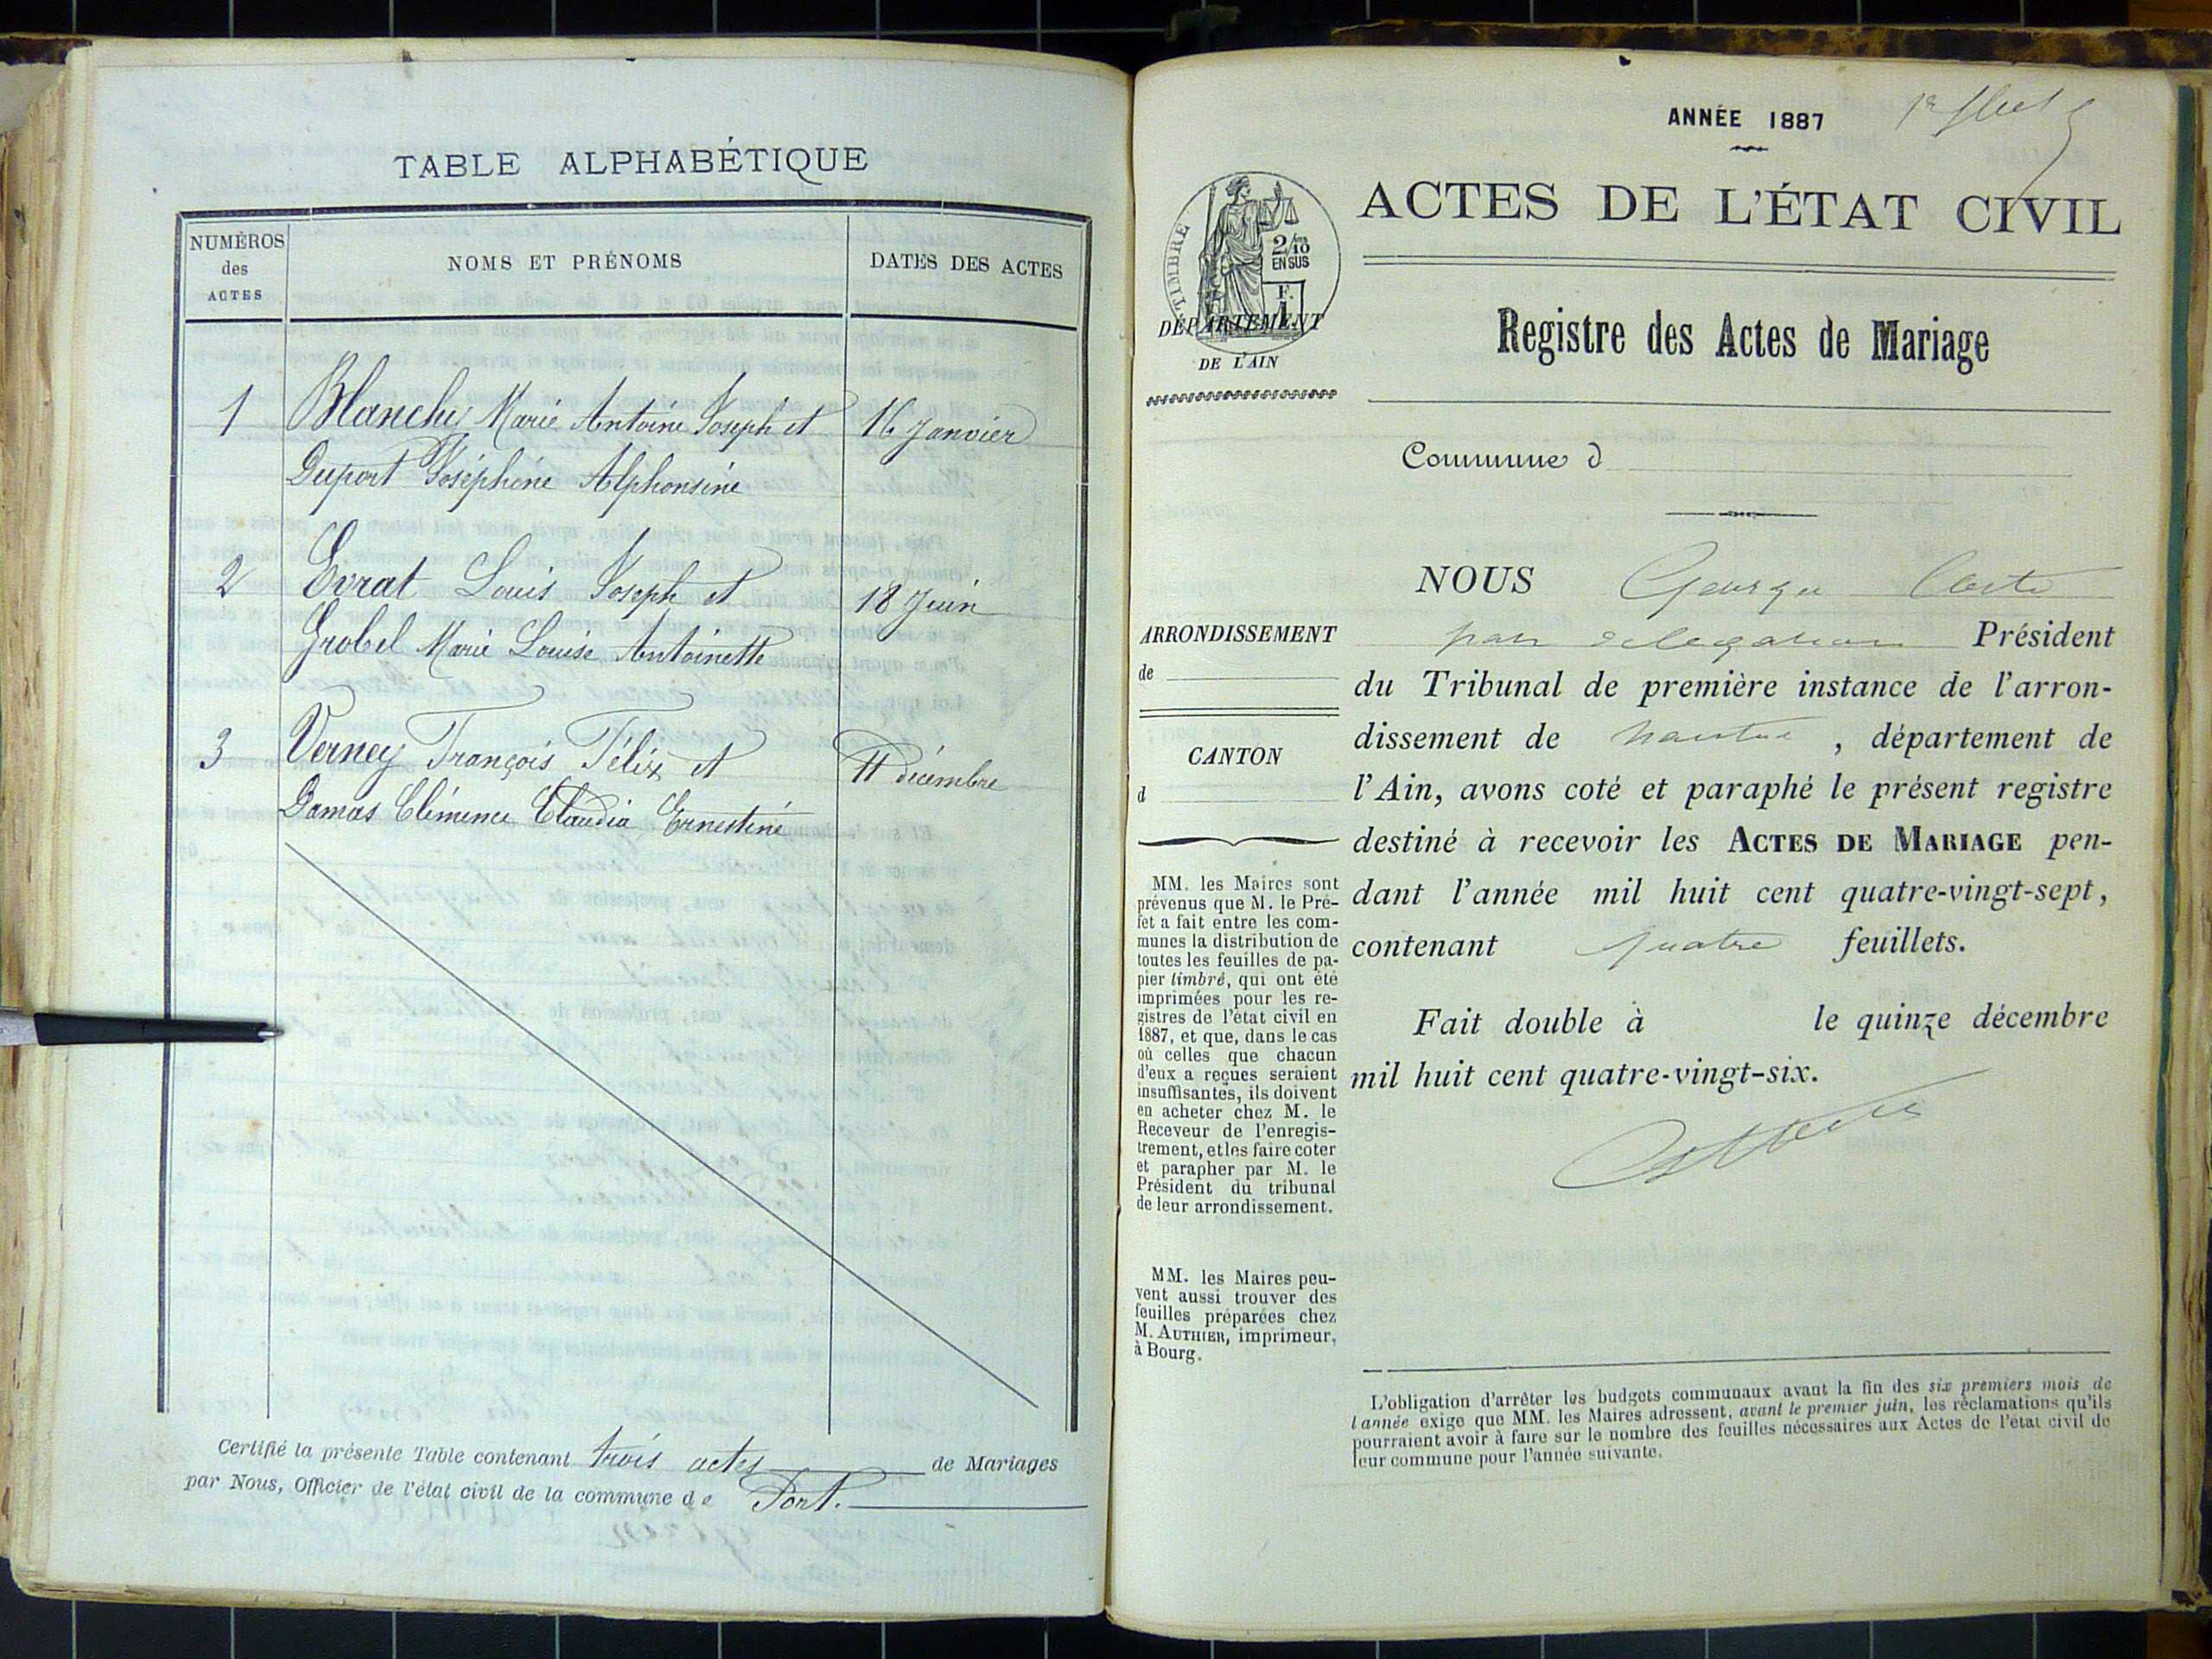 TABLE ALPHABÉTIQUE
NUMÉROS
des
ACTES
NOMS ET PRÉNOMS
DATES DES ACTES
1 Blanchy Marie Antoine Joseph et 16 Janvier
Duport Joséphine Alphonsine
2 Evrat Louis Joseph et 18 Juin
Grobel Marie Louise Antoinette
3 Verney François Félix et 11 décembre
Damas Clémence Claudia Ernestine
Certifié la présente Table contenant trois actes de Mariages
par Nous, Officier de l'état civil de la commune de Port.
ANNÉE 1887
ACTES DE L'ÉTAT CIVIL
TIMBRE
2/10
EN SUS
F.
1
DÉPARTEMENT
DE L'AIN
Registre des Actes de Mariage
Commune d
ARRONDISSEMENT
de
CANTON
d
MM. les Maires sont
prévenus que M. le Pré-
fet a fait entre les com-
munes la distribution de
toutes les feuilles de pa-
pier timbré, qui ont été
imprimées pour les re-
gistres de l'état civil en
1887, et que, dans le cas
où celles que chacun
d'eux a reçues seraient
insuffisantes, ils doivent
en acheter chez M. le
Receveur de l'enregis-
trement, et les faire coter
et parapher par M. le
Président du tribunal
de leur arrondissement.
MM. les Maires peu-
vent aussi trouver des
feuilles préparées chez
M. AUTHIER, imprimeur,
à Bourg.
NOUS
par délégation Président
du Tribunal de première instance de l'arron-
dissement de Nantua, département de
l'Ain, avons coté et paraphé le présent registre
destiné à recevoir les ACTES DE MARIAGE pen-
dant l'année mil huit cent quatre-vingt-sept,
contenant quatre feuillets.
Fait double à le quinze décembre
mil huit cent quatre-vingt-six.
L'obligation d'arrêter les budgets communaux avant la fin des six premiers mois de
l'année exige que MM. les Maires adressent, avant le premier juin, les réclamations qu'ils
pourraient avoir à faire sur le nombre des feuilles nécessaires aux Actes de l'état civil de
leur commune pour l'année suivante.